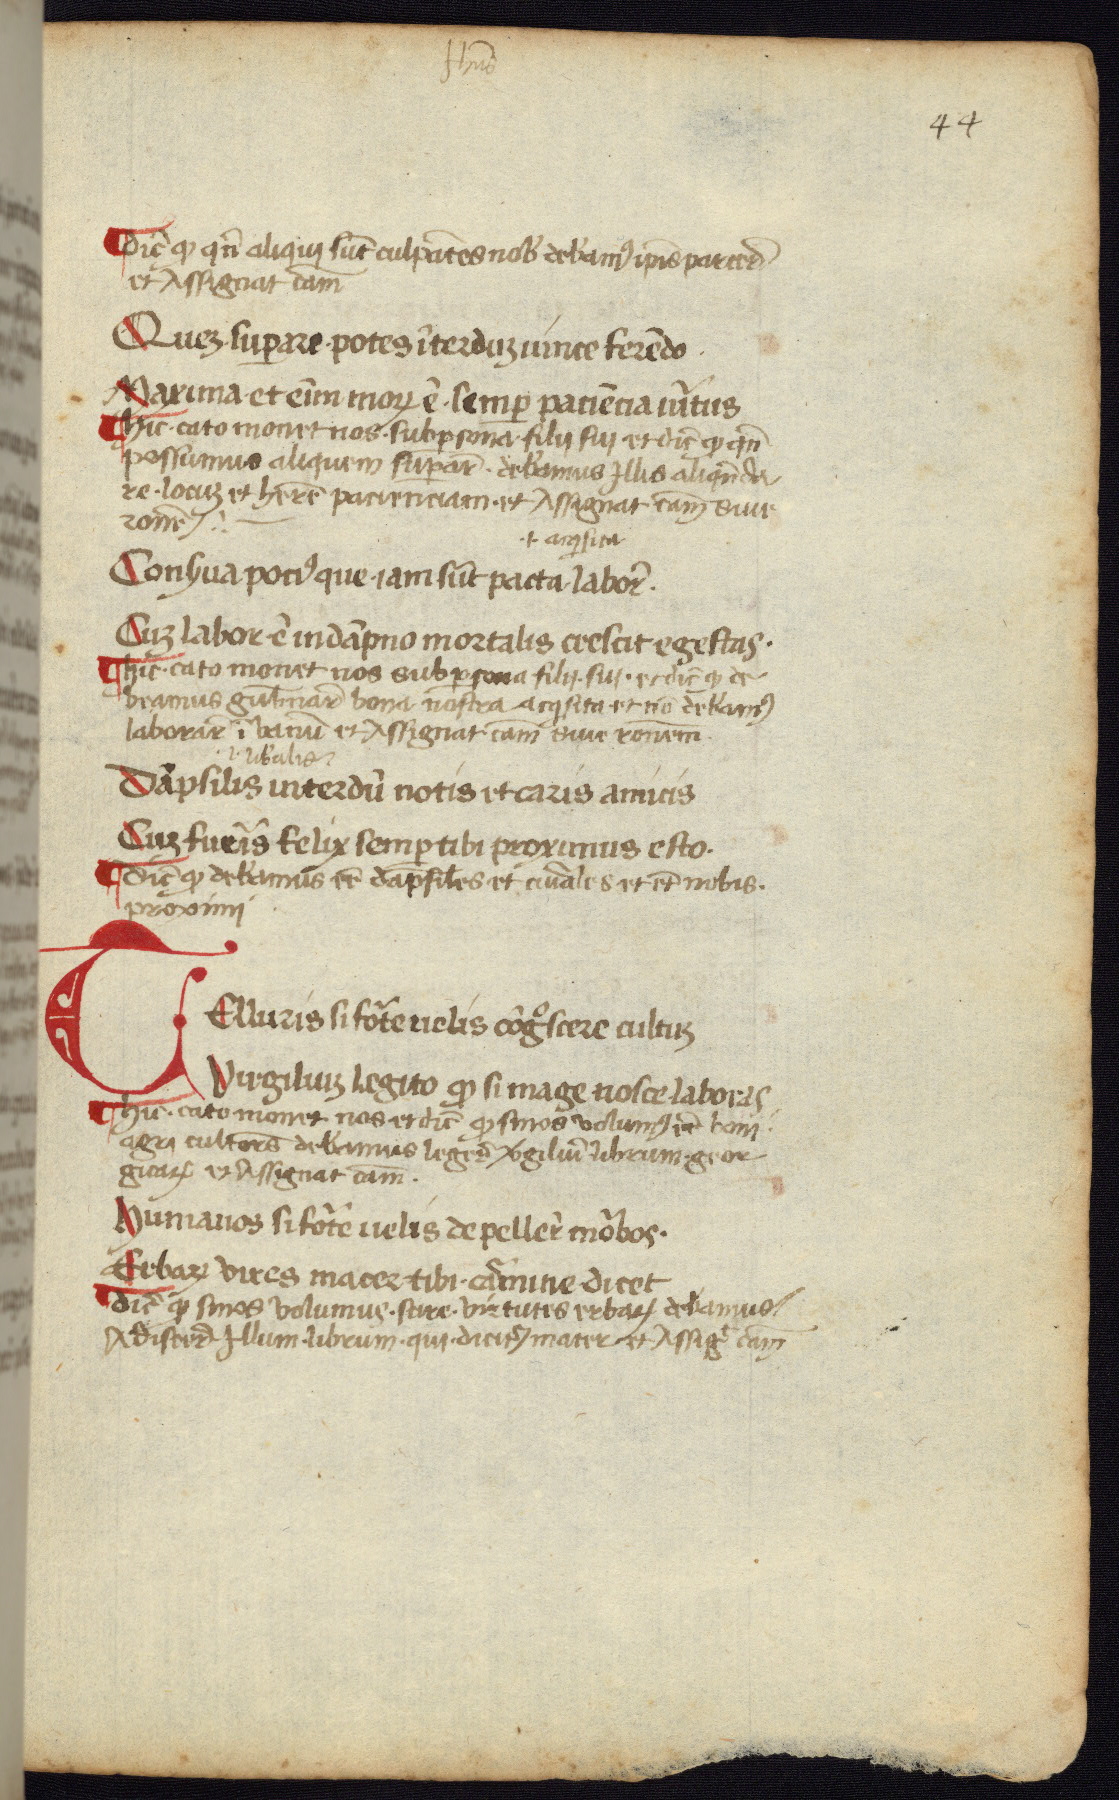 Jhus
44
dic̄ ꝙ qn̄ aliqui sūt culpātes nob̄ debam⁹ ip̄is parcer̄
et Assignat cām
Quez suꝑare potes īterduz uince ferēdo.
Maxima et eīm moꝝ ē semꝑ paciēcia uirtus
hic cato monet nos sub ꝑsona filij sui et dic̄ ꝙ qn̄
possumus aliquem suꝑar̄ debamus Illis aliqn̄ da
re locuz et h̄ere pacienciam et Assignat cām siue
ronē
·i· acq̇sita
Con̄ua poci⁹ que iam sūt parta labor̄.
Cuz labor ē in dāpno mortalis crescit egestas.
hic cato monet nos sub ꝑsona filij sui et dic̄ ꝙ de
beamus gub̄nar̄ bona nostra acq̇sita et nō debam⁹
laborar̄ ī vanū et Assignat cām siue ronem
·i· lib̄alis
Dāpsilis interdū notis et caris amicis
Cuz fuēis felix semꝑ tibi proximus esto.
dic̄ ꝙ debamus eē dapsiles et et nobis.
proximi
TElluris si forte uelis cōgᵒscere cultuz
Virgiliuz legito ꝙ si mage nosce laboras
hic cato monet nos et dic̄ ꝙ si nos volum⁹ eē boni
agri cultores debamus leger̄ v̄giliū librum geor
gicaꝝ et Assignat cām.
Humanos si forte uelis depeller̄ morbos.
Erbaꝝ vires macer tibi carmine dicet
dic̄ ꝙ si nos volumus scire virtutes erbaꝝ debamus
Adiscer̄ Illum librum qui dicit᷑ macer et Assigᵗ cām